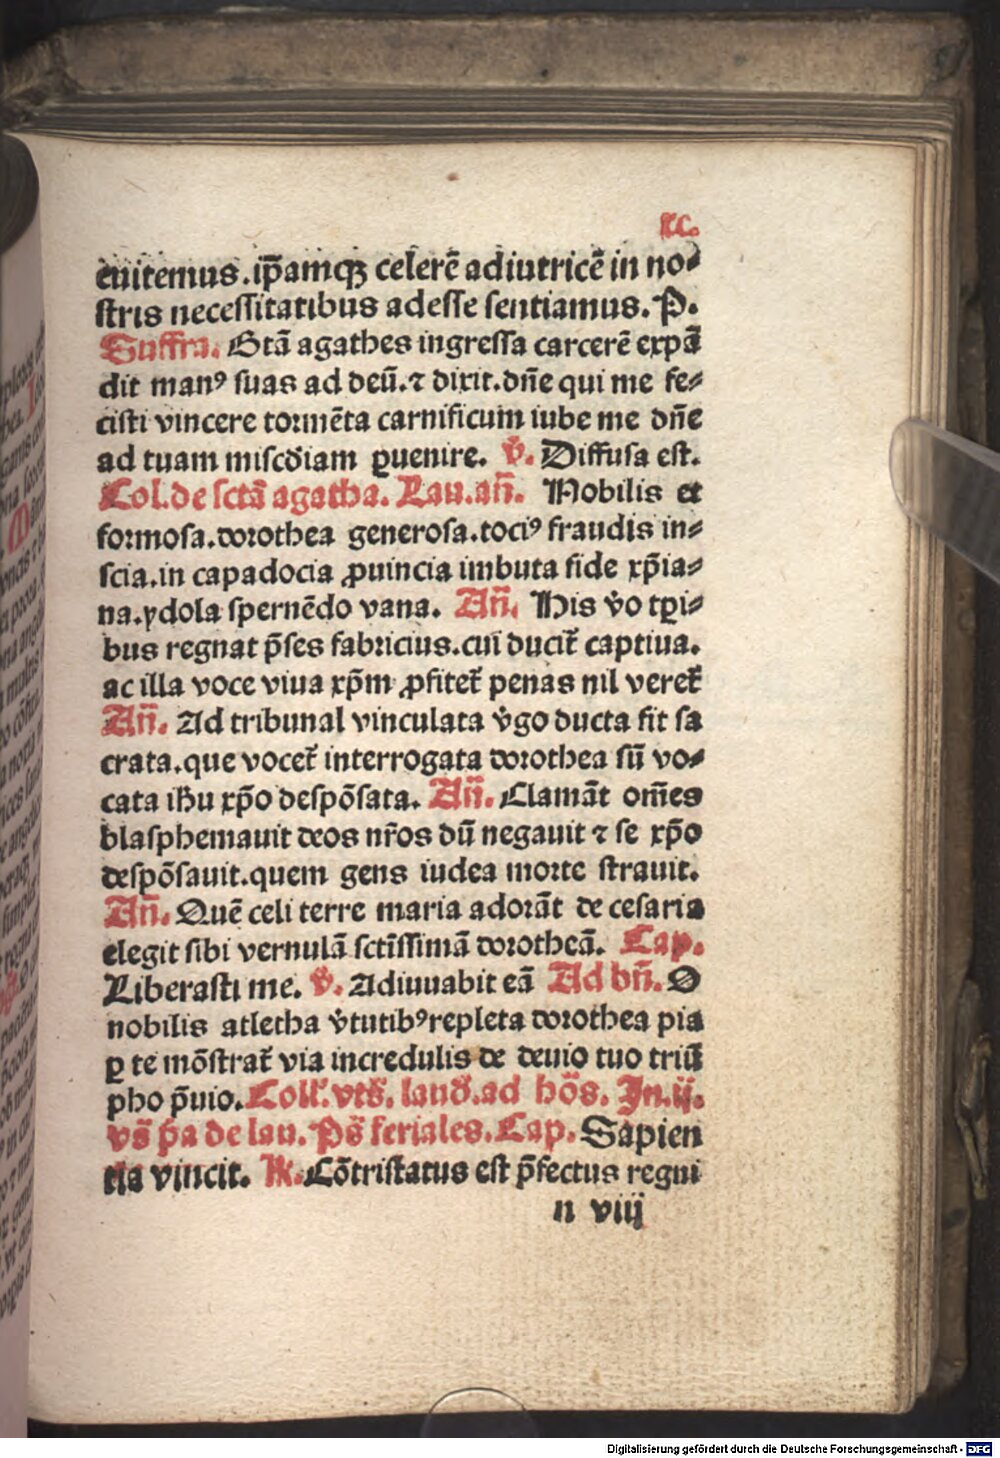 xc.
euitemus.ip̄amqꝫ celerē adiutricē in no⸗
stris necessitatibus adesse sentiamus. P.
Suffra. Stā agathes ingressa carcerē expā
dit manꝰ suas ad deū.⁊ dixit.dn̄e qui me fe⸗
cisti vincere tormēta carnificum iube me dn̄e
ad tuam miscd̄iam ꝑuenire. v̄. Diffusa est.
Col.de sctā agatha. Lau.an̄. Nobilis et
formosa.dorothea generosa.tociꝰ fraudis in⸗
scia.in capadocia ꝓuincia imbuta fide xp̄ia⸗
na.ydola spernēdo vana. An̄. His v̄o tꝑi⸗
bus regnat p̄ses fabricius.cui ducit̄ captiua.
ac illa voce viua xp̄m ꝓfitet̄ penas nil veret̄
An̄. Ad tribunal vinculata v̄go ducta fit sa
crata.que vocet̄ interrogata dorothea sū vo⸗
cata ihu xp̄o despōsata. An̄. Clamāt om̄es
blasphemauit deos nr̄os dū negauit ⁊ se xp̄o
despōsauit.quem gens iudea morte strauit.
An̄. Quē celi terre maria adorāt de cesaria
elegit sibi vernulā sctīssimā dorotheā. Cap.
Liberasti me. v̄. Adiuuabit eā Ad bn̄. O
nobilis atletha v̄tutibꝰ repleta dorothea pia
ꝑ te mōstrat̄ via incredulis de deuio tuo triū
pho p̄uio. Coll̄.vts̄. laud̄.ad hōs. In.ij.
vs̄ p̄a de lau. Ps̄ feriales. Cap. Sapien
tia vincit. R. Cōtristatus est p̄fectus regni
n viij
Digitalisierung gefördert durch die Deutsche Forschungsgemeinschaft - DFG